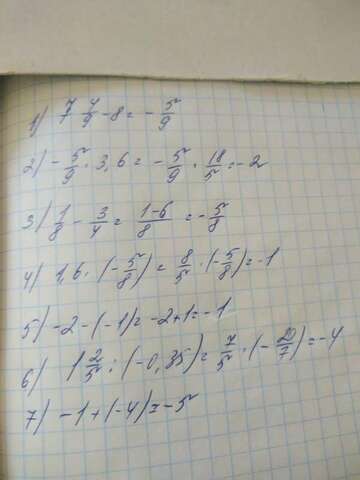 1) 7 4/9 - 8 = - 5/9
2) - 5/9 · 3,6 = - 5/9 · 18/5 = -2
3) 1/8 - 3/4 = 1-6/8 = - 5/8
4) 1,6 · (- 5/8) = 8/5 · (- 5/8) = -1
5) -2 - (-1) = -2+1 = -1
6) 1 2/5 : (-0,35) = 7/5 · (- 20/7) = -4
7) -1 + (-4) = -5